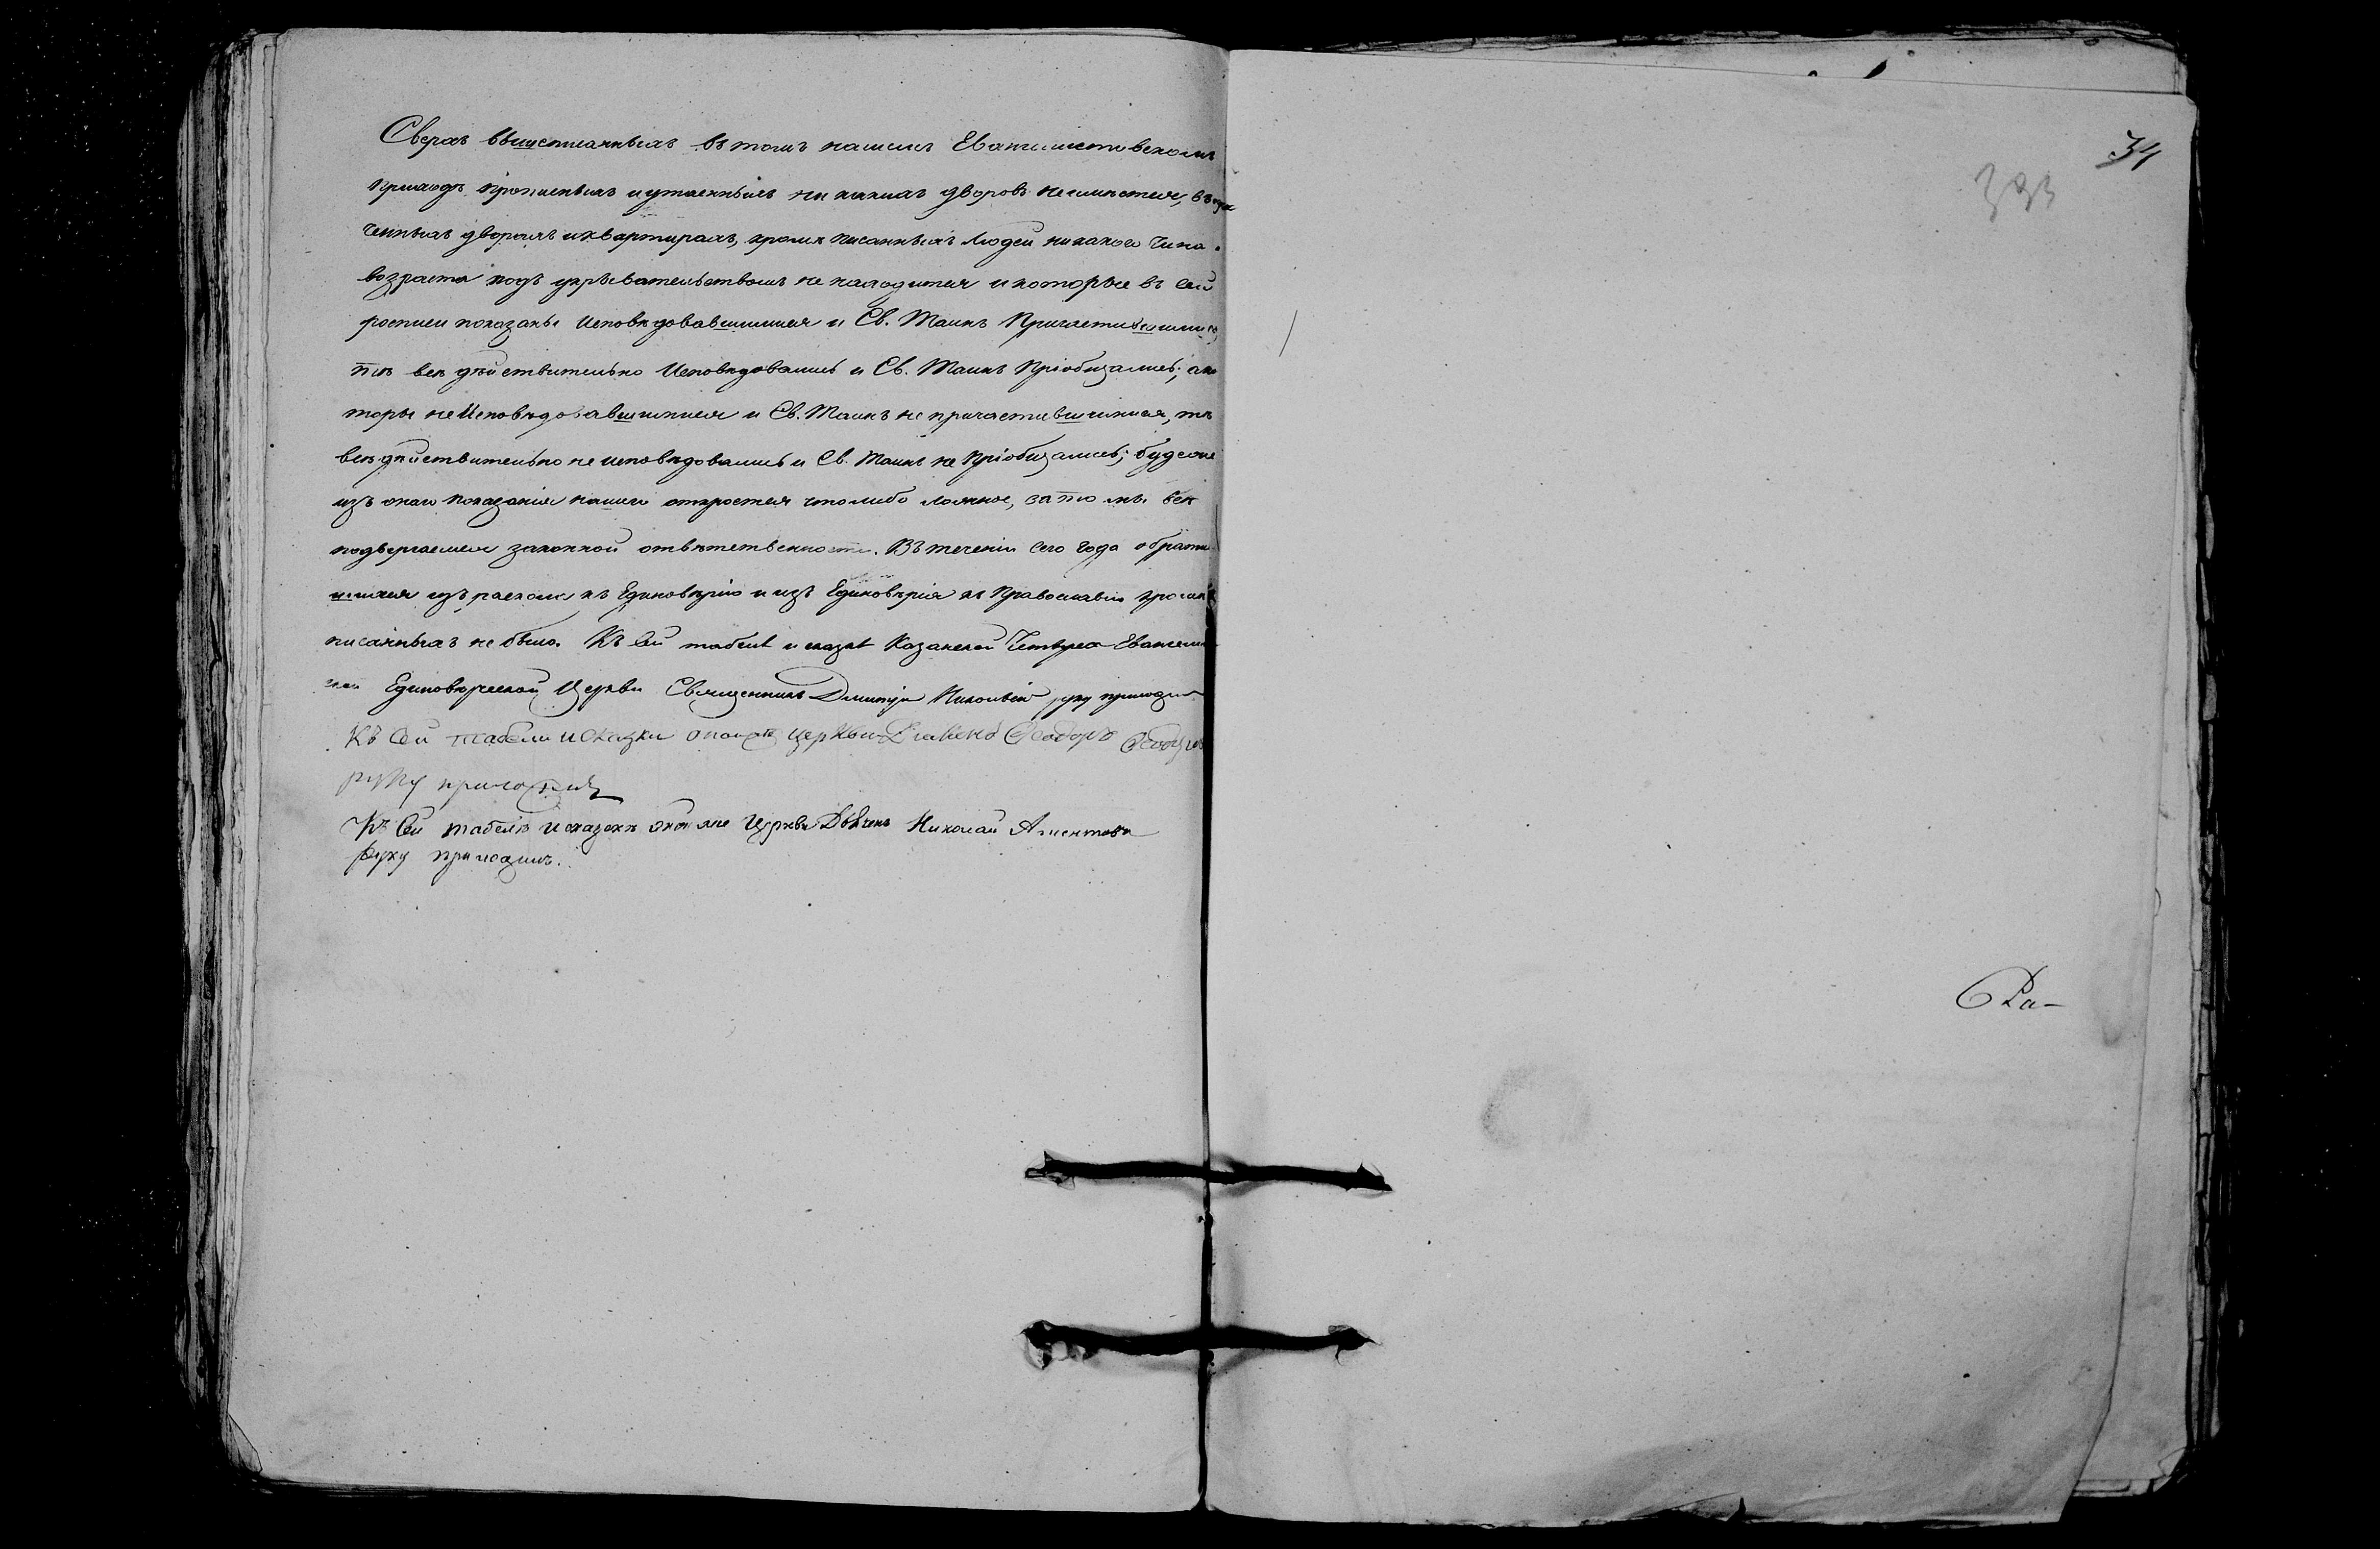 Сверхъ вышеписанныхъ въ томъ нашемъ Евангелистовскомъ
приходѣ прописныхъ и утаенныхъ ни какихъ дворовъ неимѣется, въ
ченныхъ дворахъ и квартирахъ, кромѣ писанныхъ людей никакого чина
возраста подъ укрывательствомъ не находится и которые въ сей
росписи показаны Исповѣдовавшимися и Св. Таинъ Причастившимися,
тѣ всѣ дѣйствительно Исповѣдовались и Св. Таинъ Пріобщались; а ко
торые не Исповѣдовавшимися и Св. Таинъ не причастившимися, тѣ
всѣ дѣйствительно не исповѣдовались и Св. Таинъ не Пріобщались; буде же
изъ онаго показанія нашего откроется что либо ложное, за то мы всѣ
подвергаемся законной отвѣтственности. Въ теченіи сего года обрати
шихся изъ раскола къ Единовѣрію и изъ Единовѣрія къ Православію кромѣ
писанныхъ не было. Къ сей табели и сказкѣ Казанской Четырех-Евангели
ской Единовѣрческой Церкви Священникъ Димитрій руку приложи
Къ сей табели и сказки оной же церкви Діаконъ Ѳеодоръ
руку приложилъ
Къ сей табели и сказки оной же Церкви Дьячекъ Николай
руку приложилъ.
34
393
Ра-